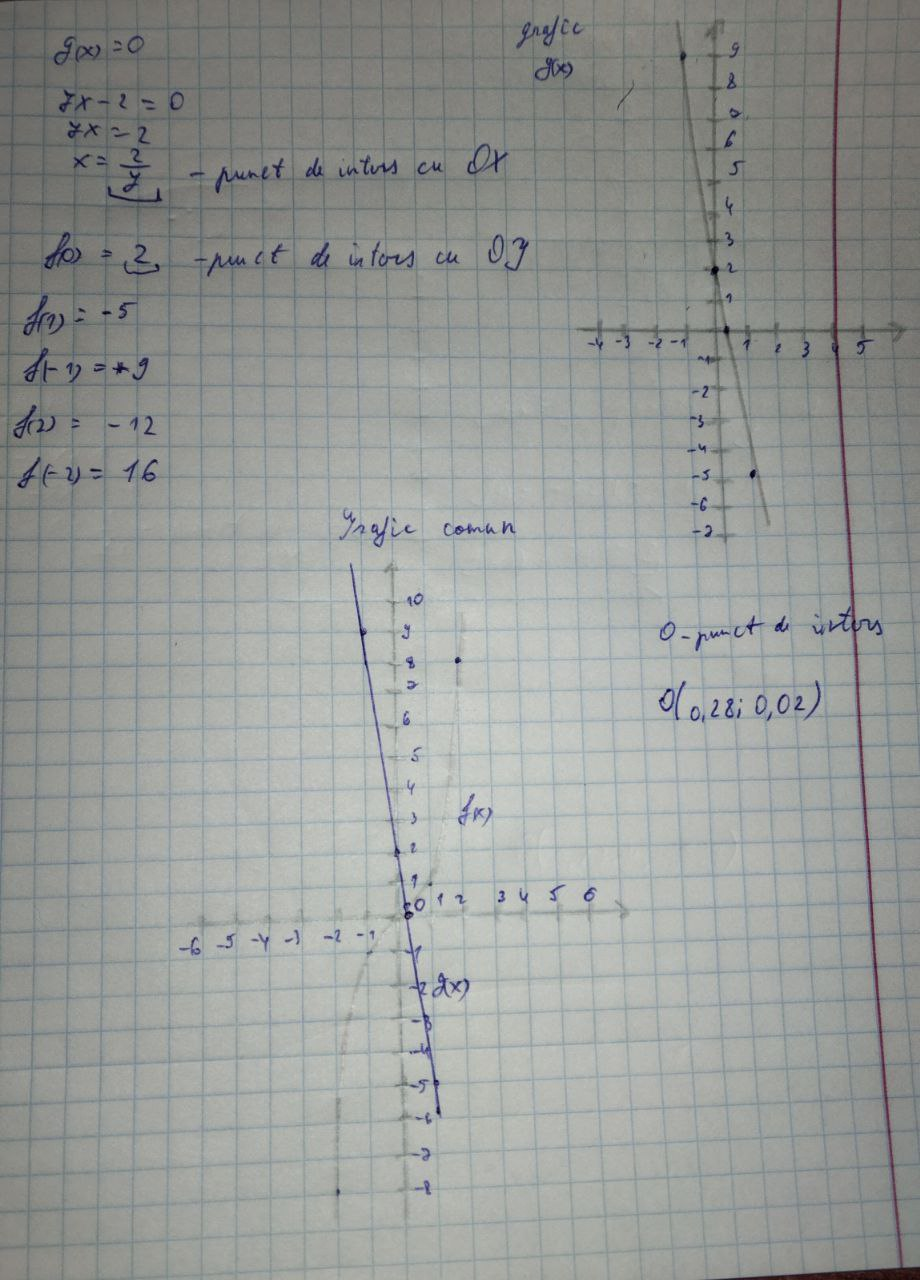 g(x) = 0
7x - 2 = 0
7x = 2
x = 2/7 - punct de inters cu OX
f(0) = 2 - punct de inters cu OY
f(1) = -5
f(-1) = 9
f(2) = -12
f(-2) = 16
grafic
g(x)
9
8
7
6
5
4
3
2
1
-4 -3 -2 -1 1 2 3 4 5
-1
-2
-3
-4
-5
-6
-7
Grafic comun
10
9
8
7
6
5
4
3
2
1
f(x)
0 1 2 3 4 5 6
-6 -5 -4 -3 -2 -1
-1
-2 g(x)
-3
-4
-5
-6
-7
-8
O - punct de inters
O(0,28; 0,02)